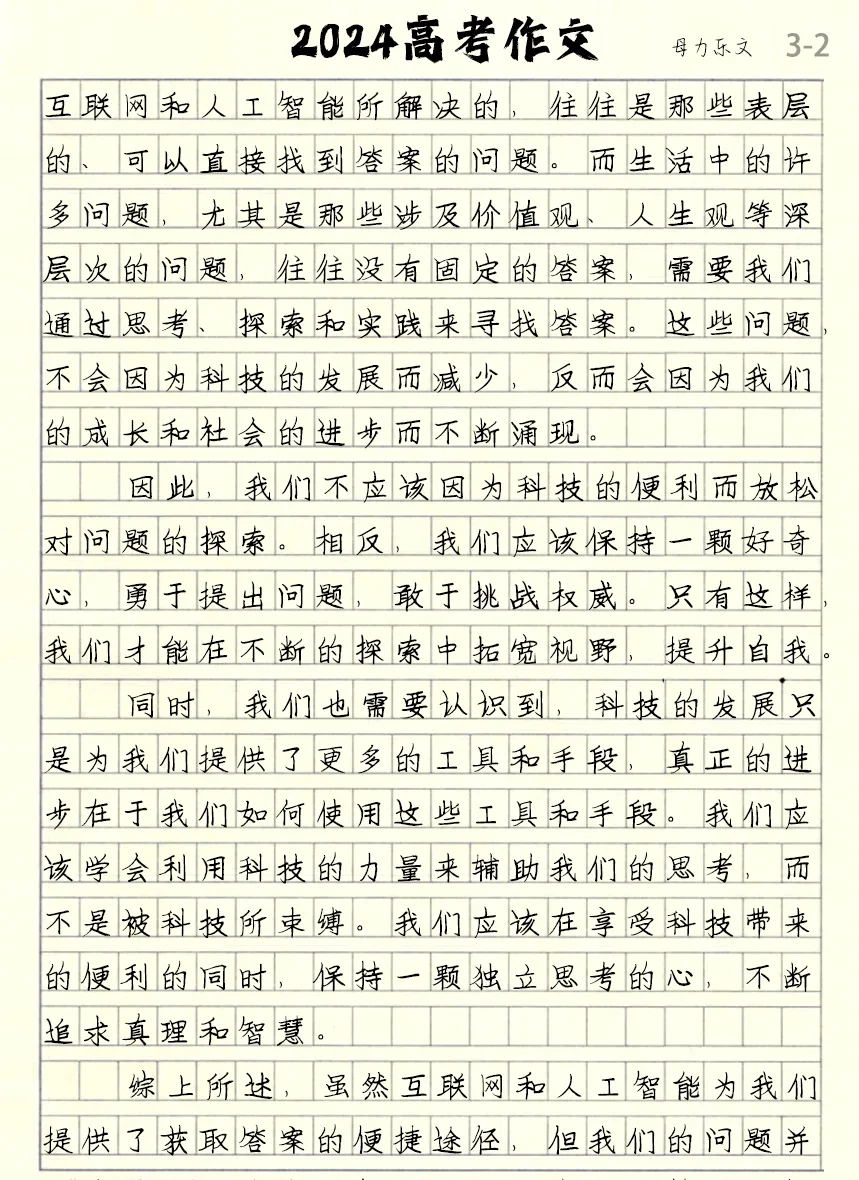 2024高考作文
母力乐文 3-2
互联网和人工智能所解决的，往往是那些表层
的、可以直接找到答案的问题。而生活中的许
多问题，尤其是那些涉及价值观、人生观等深
层次的问题，往往没有固定的答案，需要我们
通过思考、探索和实践来寻找答案。这些问题，
不会因为科技的发展而减少，反而会因为我们
的成长和社会的进步而不断涌现。
因此，我们不应该因为科技的便利而放松
对问题的探索。相反，我们应该保持一颗好奇
心，勇于提出问题，敢于挑战权威。只有这样，
我们才能在不断的探索中拓宽视野，提升自我。
同时，我们也需要认识到，科技的发展只
是为我们提供了更多的工具和手段，真正的进
步在于我们如何使用这些工具和手段。我们应
该学会利用科技的力量来辅助我们的思考，而
不是被科技所束缚。我们应该在享受科技带来
的便利的同时，保持一颗独立思考的心，不断
追求真理和智慧。
综上所述，虽然互联网和人工智能为我们
提供了获取答案的便捷途径，但我们的问题并